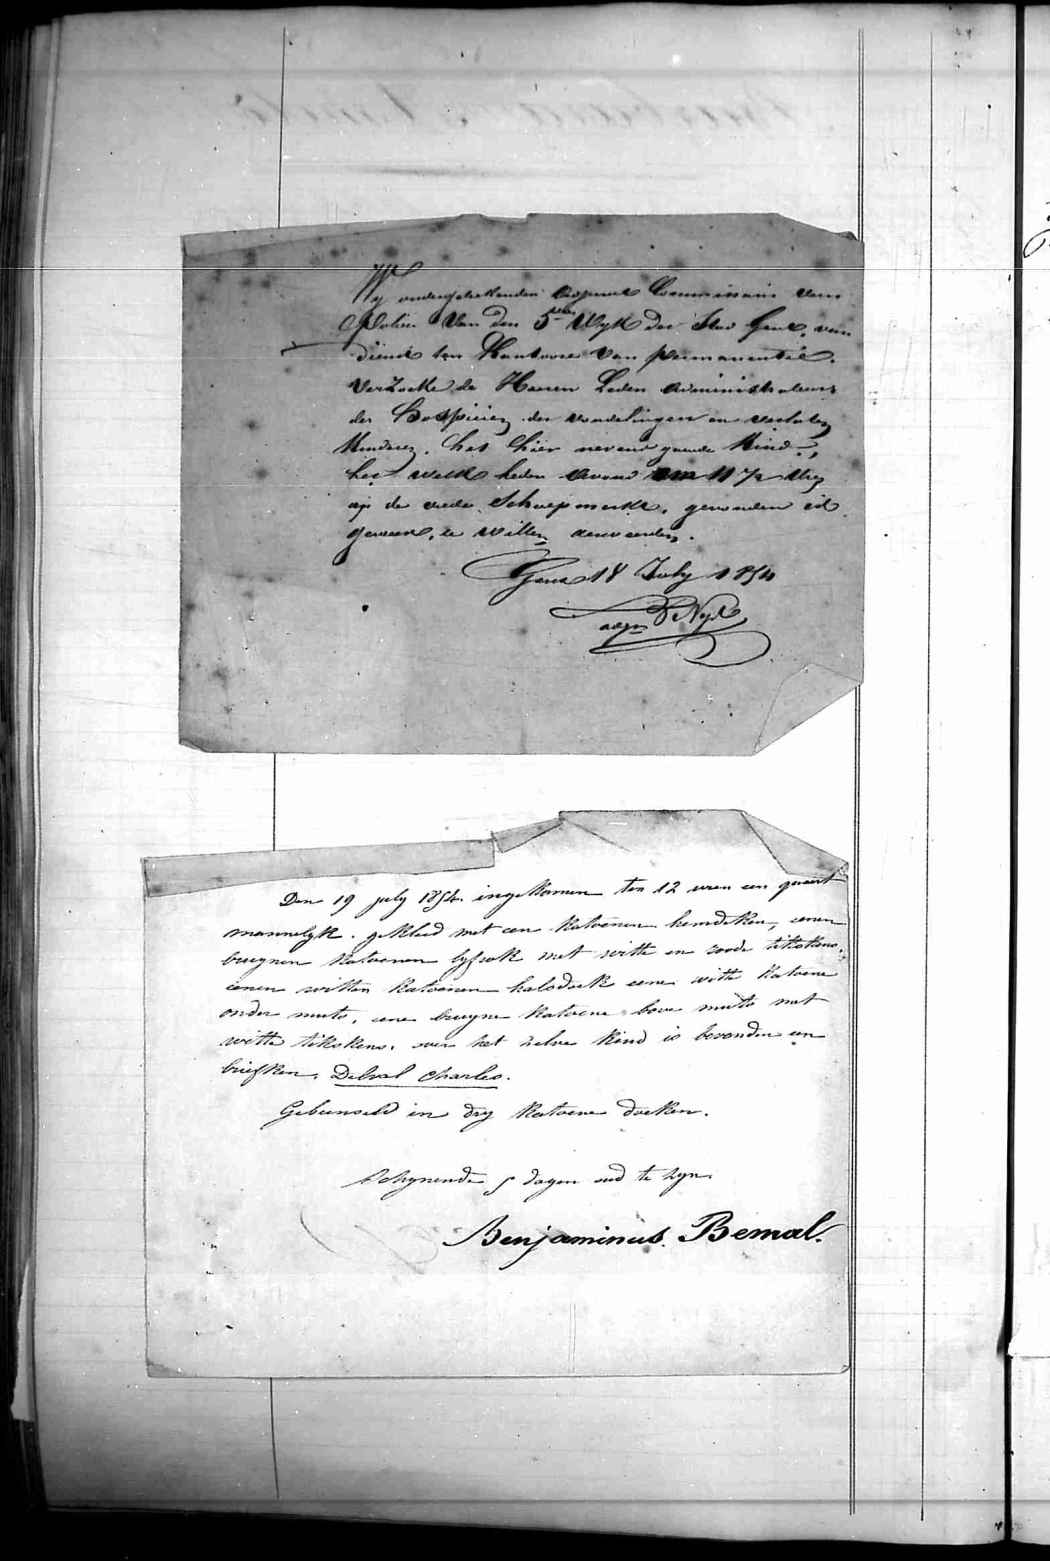 Wy ondergeteekenden adjunct Commissaris van
Policie Van den 5den Wyk der Stad Gent, van
dienst ten Kantoore Van permanentie.
Verzoeke de Heeren Leden administrateurs
der Hospicien der vondelingen en verlaten
Kinderen, het hier nevens gaende Kind,
het welk heden avond om 11 1/2 Uren
op de oude Schaepmerkt, gevonden is
geweest, te willen aenveerden.
Gent 18 July 1854
adjn D Nyt
Den 19 july 1854 ingekomen ten 12 uren een quaert
mannelyk. gekleed met een katoenen hemdeken, eenen
bruynen katoenen lyfrok met witte en roode tikskens,
eenen witten katoenen halsdoek eene witte katoene
onder muts, eene bruyne katoene bove muts met
witte tikskens. over het zelve kind is bevonden een
briefken. Delval Charles.
Gebunseld in dry katoene doeken.
Schynende 5 dagen oud te zyn.
Benjaminus Bemal.